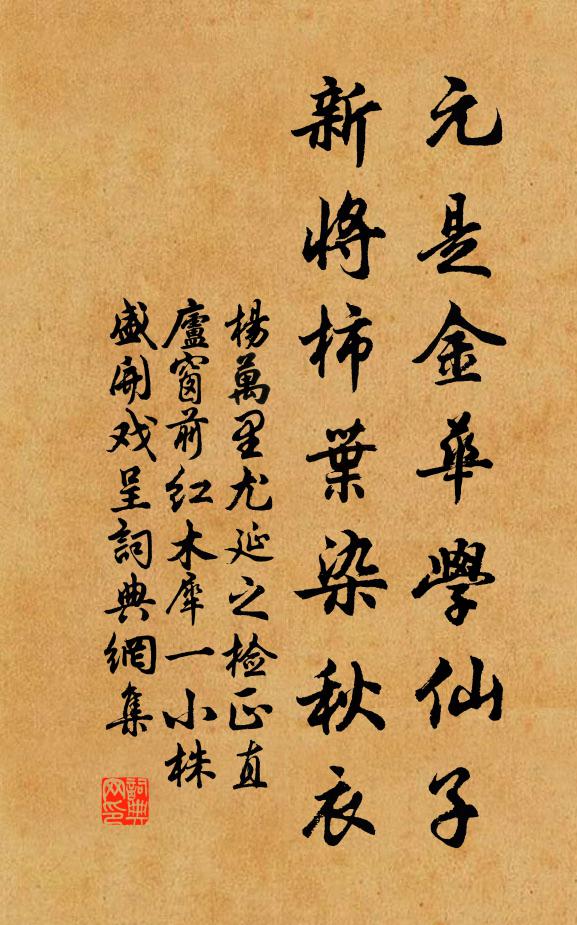 元是金華學仙子
新將柿葉染秋衣
楊萬里尤延之檢正直
廬窗前红木犀一小株
盛開戏呈詞典網集
詞典网印